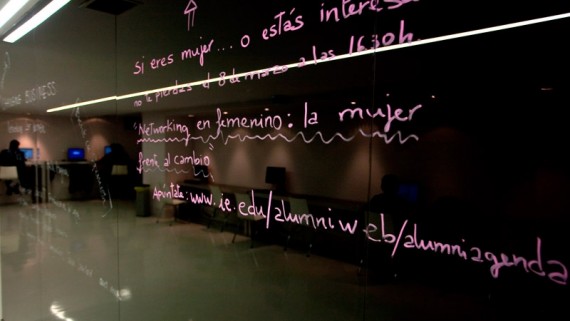 Si eres mujer... o estás
no te pierdas el 8 de marzo a las 16:30h.
"Networking en femenino: la mujer
frente al cambio"
Apúntate: www.ie.edu/alumniweb/alumniagenda
BUSINESS